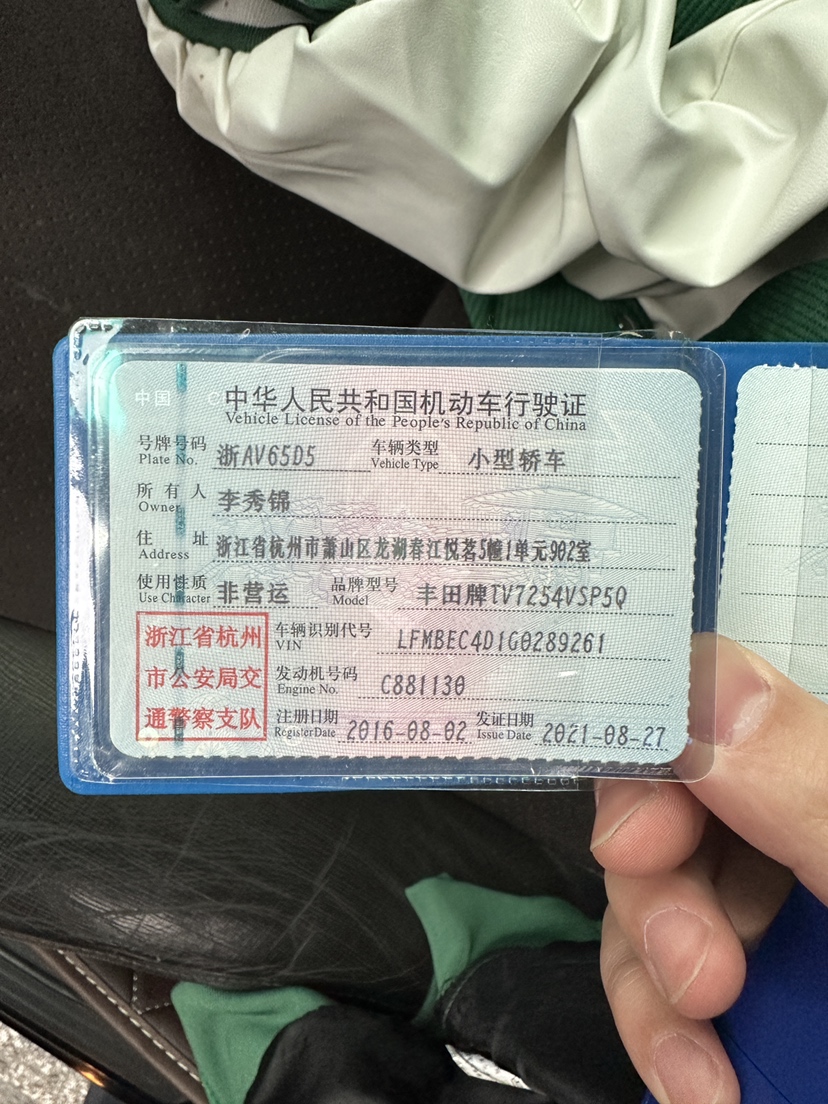 中国 C
中华人民共和国机动车行驶证
Vehicle License of the People's Republic of China
号牌号码 Plate No. 浙AV65D5 车辆类型 Vehicle Type 小型轿车
所有人 Owner 李秀锦
住址 Address 浙江省杭州市萧山区龙湖春江悦茗5幢1单元902室
使用性质 Use Character 非营运 品牌型号 Model 丰田牌TV7254VSP5Q
浙江省杭州市公安局交通警察支队
车辆识别代号 VIN LFMBEC4D1G0289261
发动机号码 Engine No. C881130
注册日期 Register Date 2016-08-02 发证日期 Issue Date 2021-08-27